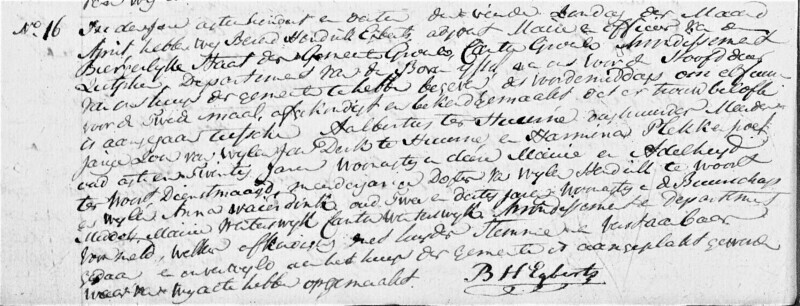 No 16 In den Jare achtienhondert en dertien den vierden Dandag der Maand
April hebben wy Berend Hendrik Egberts, adjoint Maire en Officier van de
Burgerlyke Staat der Gemeente Groenlo, Canton Groenlo Arrondissement
Zutphen Departement van de Boven Yssel ons voor de Hoofddeur
van ons huys der gemeente te hebbe begeven des voordemiddags om elf uur
voor de tweede maal, afgekondigt en bekendgemaakt dat er trouwbelofte
is aangegaan tussche Aalbertus ter Huurne daghuurder Meerder-
jarige Zoon van wylen Jan Derk te Huurne en Harmina Plekkenpoel
oud acht en twintig Jaren Woonagtig en deese Mairie en Adelheyd
te Woort Dienstmaagd, meerderjarige Dogter van wyle Hendrik te Woort
en wyle Anna Waierdink oud twee en dertig jaren Woonagtig in de Buurschap
Meddoh, Mairie Winterswyk Canton Winterswyk Arrondissement en Departement
voormeld, welke afkondiging met luyder Stemme en verstaanbaar
gedaan en onverwyld aan het huys der gemeente is aangeplakt geworden
waar van wy acte hebbe opgemaakt.
B H Egberts